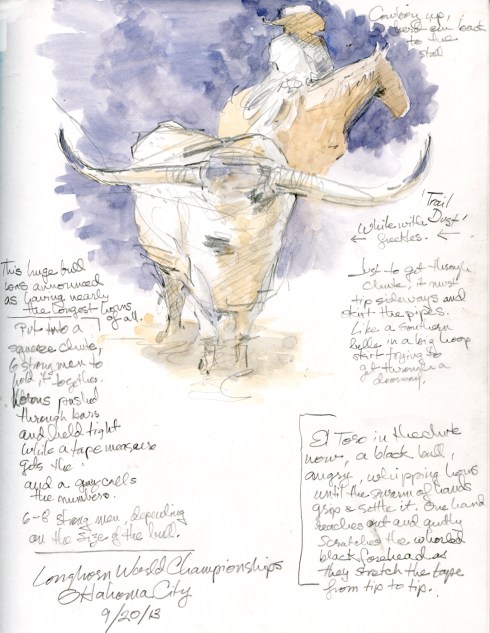 Cowboy up,
herd em back
to the
stall
'Trail
Dust'
White with
freckles.
This huge bull
was announced
as having nearly
the longest horns
of all.
Put into a
squeeze chute,
6 strong men to
hold it together.
Horns pushed
through bars
and held tight
while a tape measure
gets the
and a guy calls
the numbers.
6-8 strong men, depending
on the size of the bull.
Just to get through
chute, it must
tip sideways and
skirt the pipes.
Like a southern
belle in a big hoop
skirt trying to
get through a
doorway.
El Toro in the chute
now, a black bull,
angry, whipping horns
until the swarm of hands
grips & settle it. One hand
reaches out and gently
scratches the whorled
black forehead as
they stretch the tape
from tip to tip.
Longhorn World Championships
Oklahoma City
9/20/13